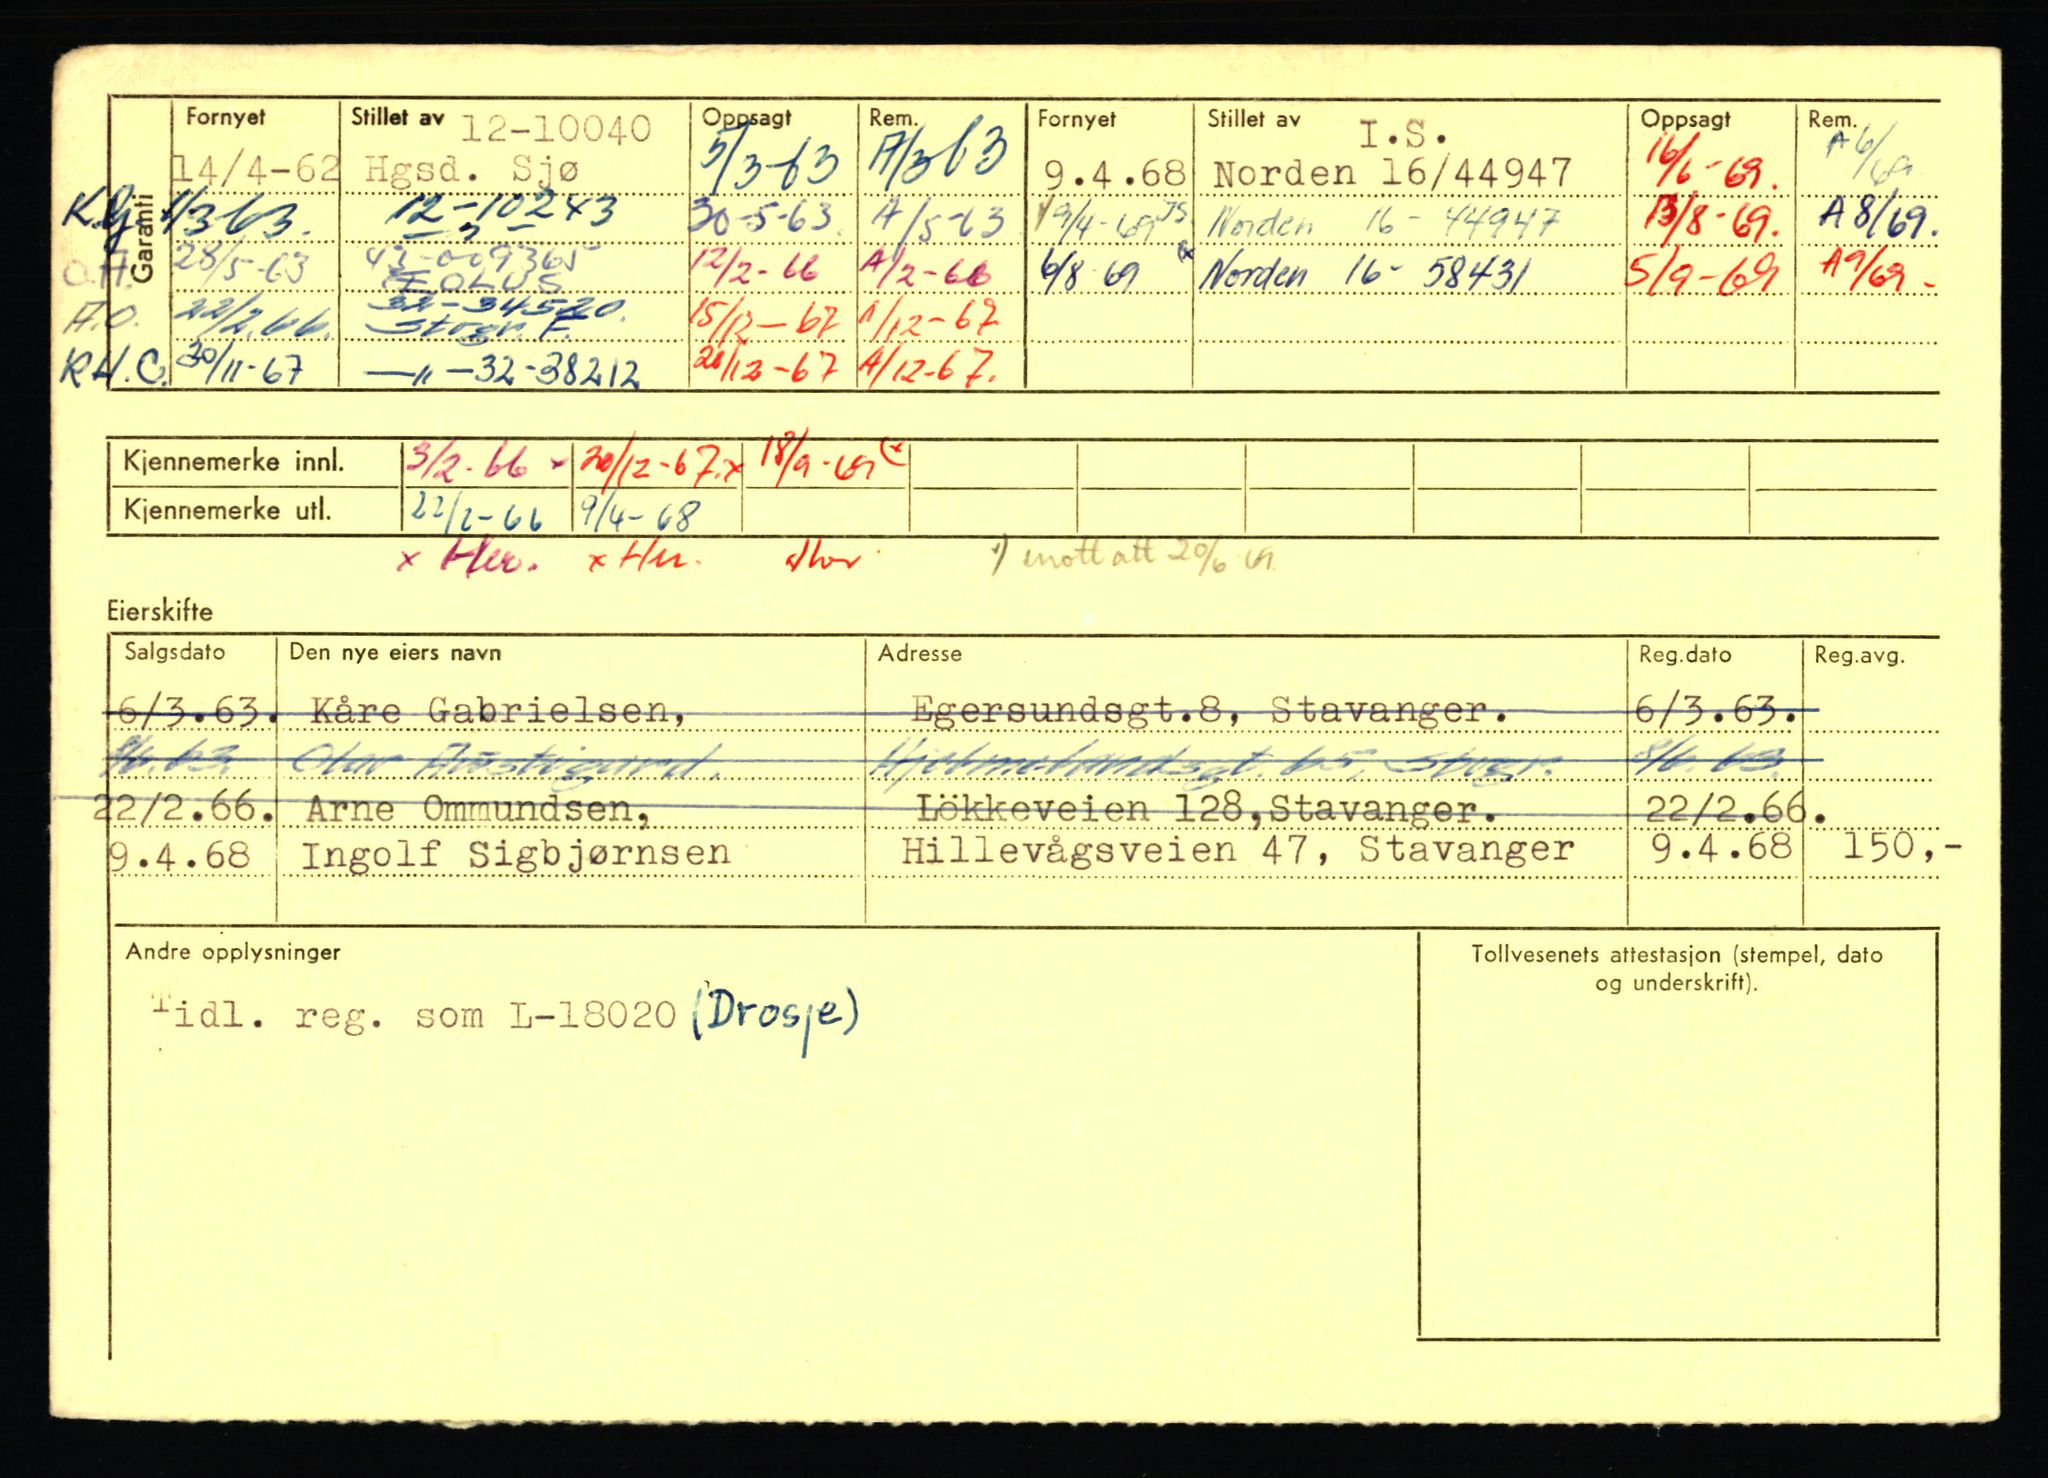 Garanti
Fornyet Stillet av 12-10040 Oppsagt Rem. Fornyet Stillet av I.S. Oppsagt Rem.
14/4-62 Hgsd. Sjø 5/3-63 A/3-63 9.4.68 Norden 16/44947 16/6-69. A 6/69
K.G. 1/3-63. 12-10243 30-5-63. A/5-63 1) 9/4-69 IS Norden 16-44947 13/8-69. A 8/69.
O.H. 28/5-63 43-009365 ÆOLUS 12/2-66 A/2-66 6/8 69 Norden 16-58431 5/9-69 A9/69-
A.O. 22/2.66. 32-34520. Stvgr. F. 15/12-67 A/12-67
K.H.C. 30/11-67 —"—32-38212 20/12-67 A/12-67.
Kjennemerke innl. 3/2-66 x 20/12-67.x 18/9-69 (x
Kjennemerke utl. 22/2-66 9/4-68
x Her. x Her. 1) mottatt 20/6 69
Eierskifte
Salgsdato Den nye eiers navn Adresse Reg.dato Reg.avg.
6/3.63. Kåre Gabrielsen, Egersundsgt.8, Stavanger. 6/3.63.
8/6.63. Olav Hjelmelandsgt. 65, Stvgr. 8/6.63.
22/2.66. Arne Ommundsen, Lökkeveien 128,Stavanger. 22/2.66.
9.4.68 Ingolf Sigbjørnsen Hillevågsveien 47, Stavanger 9.4.68 150,-
Andre opplysninger
Tollvesenets attestasjon (stempel, dato
og underskrift).
Tidl. reg. som L-18020 (Drosje)